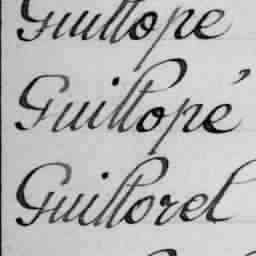 Guillopé
Guillopé
Guillorel